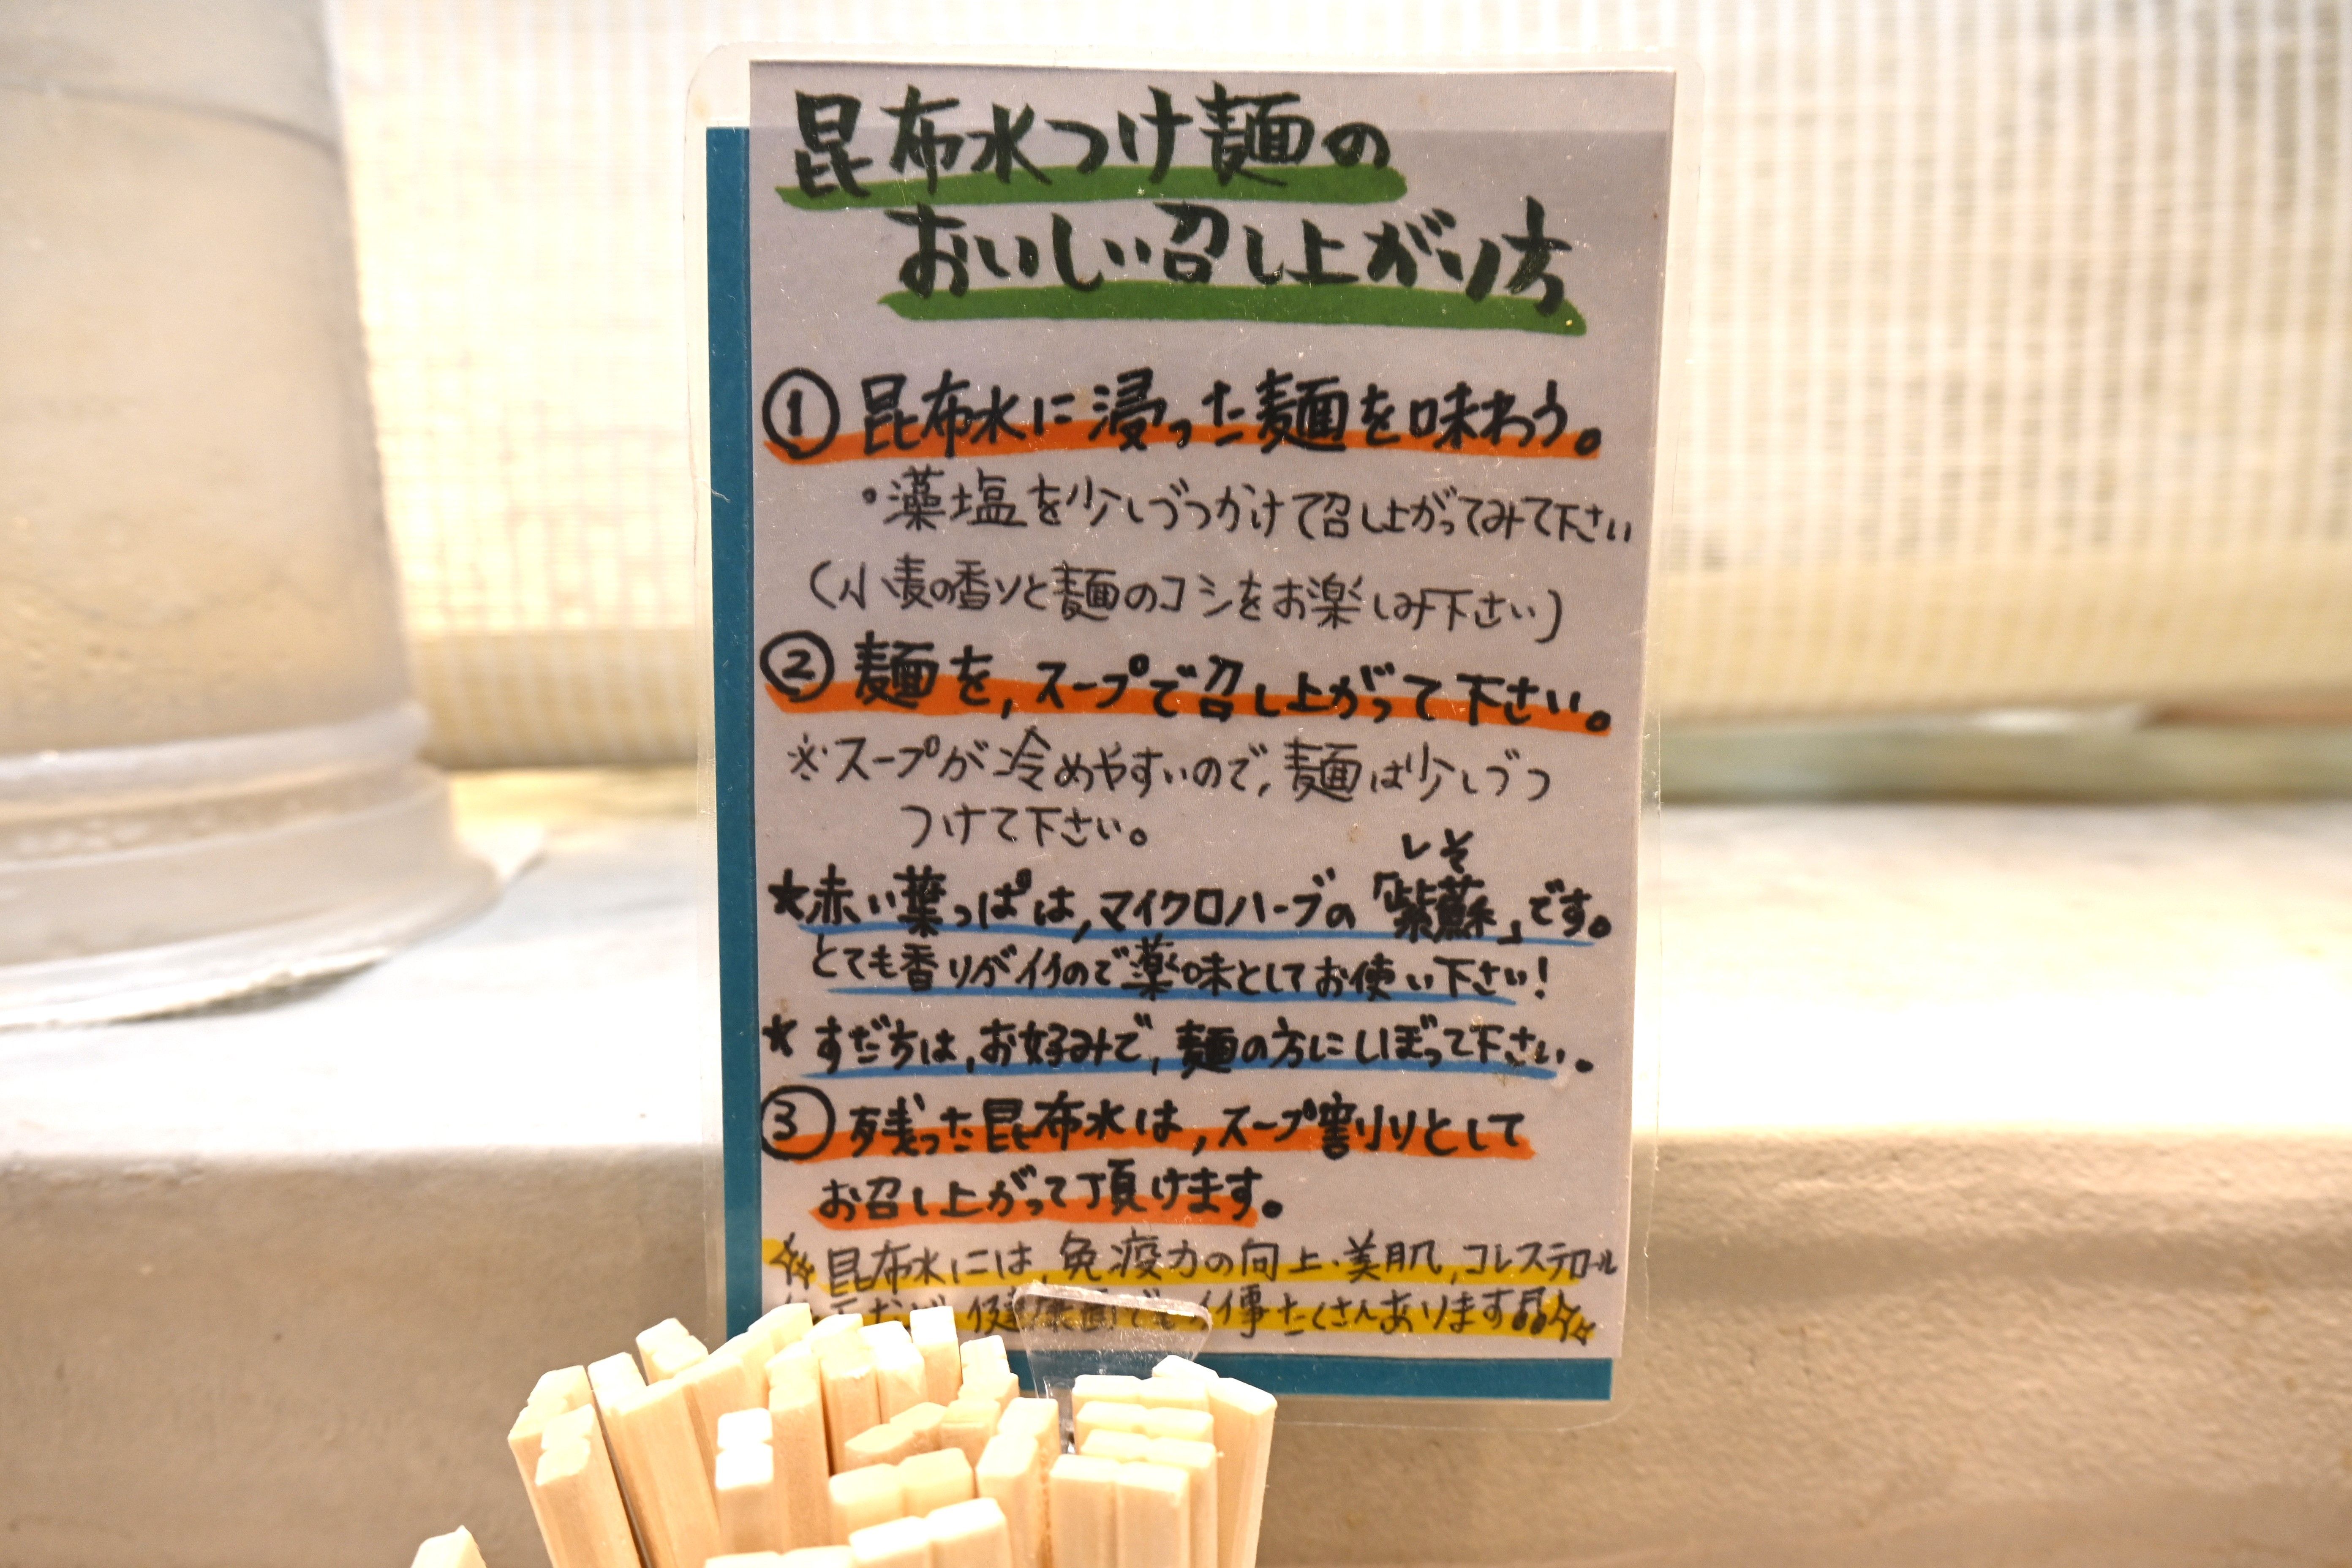 昆布水つけ麺の
おいしい召し上がり方
① 昆布水に浸った麺を味わう。
・藻塩を少しづつかけて召し上がってみて下さい
(小麦の香りと麺のコシをお楽しみ下さい)
② 麺を,スープで召し上がって下さい。
※スープが冷めやすいので,麺は少しづつ
つけて下さい。
しそ
★赤い葉っぱは,マイクロハーブの「紫蘇」です。
とても香りがイイので薬味としてお使い下さい!
★すだちは,お好みで,麺の方にしぼって下さい。
③ 残った昆布水は,スープ割りとして
お召し上がって頂けます。
☆昆布水には,免疫力の向上・美肌,コレステロール
健康面でもイイ事たくさんあります♫☆